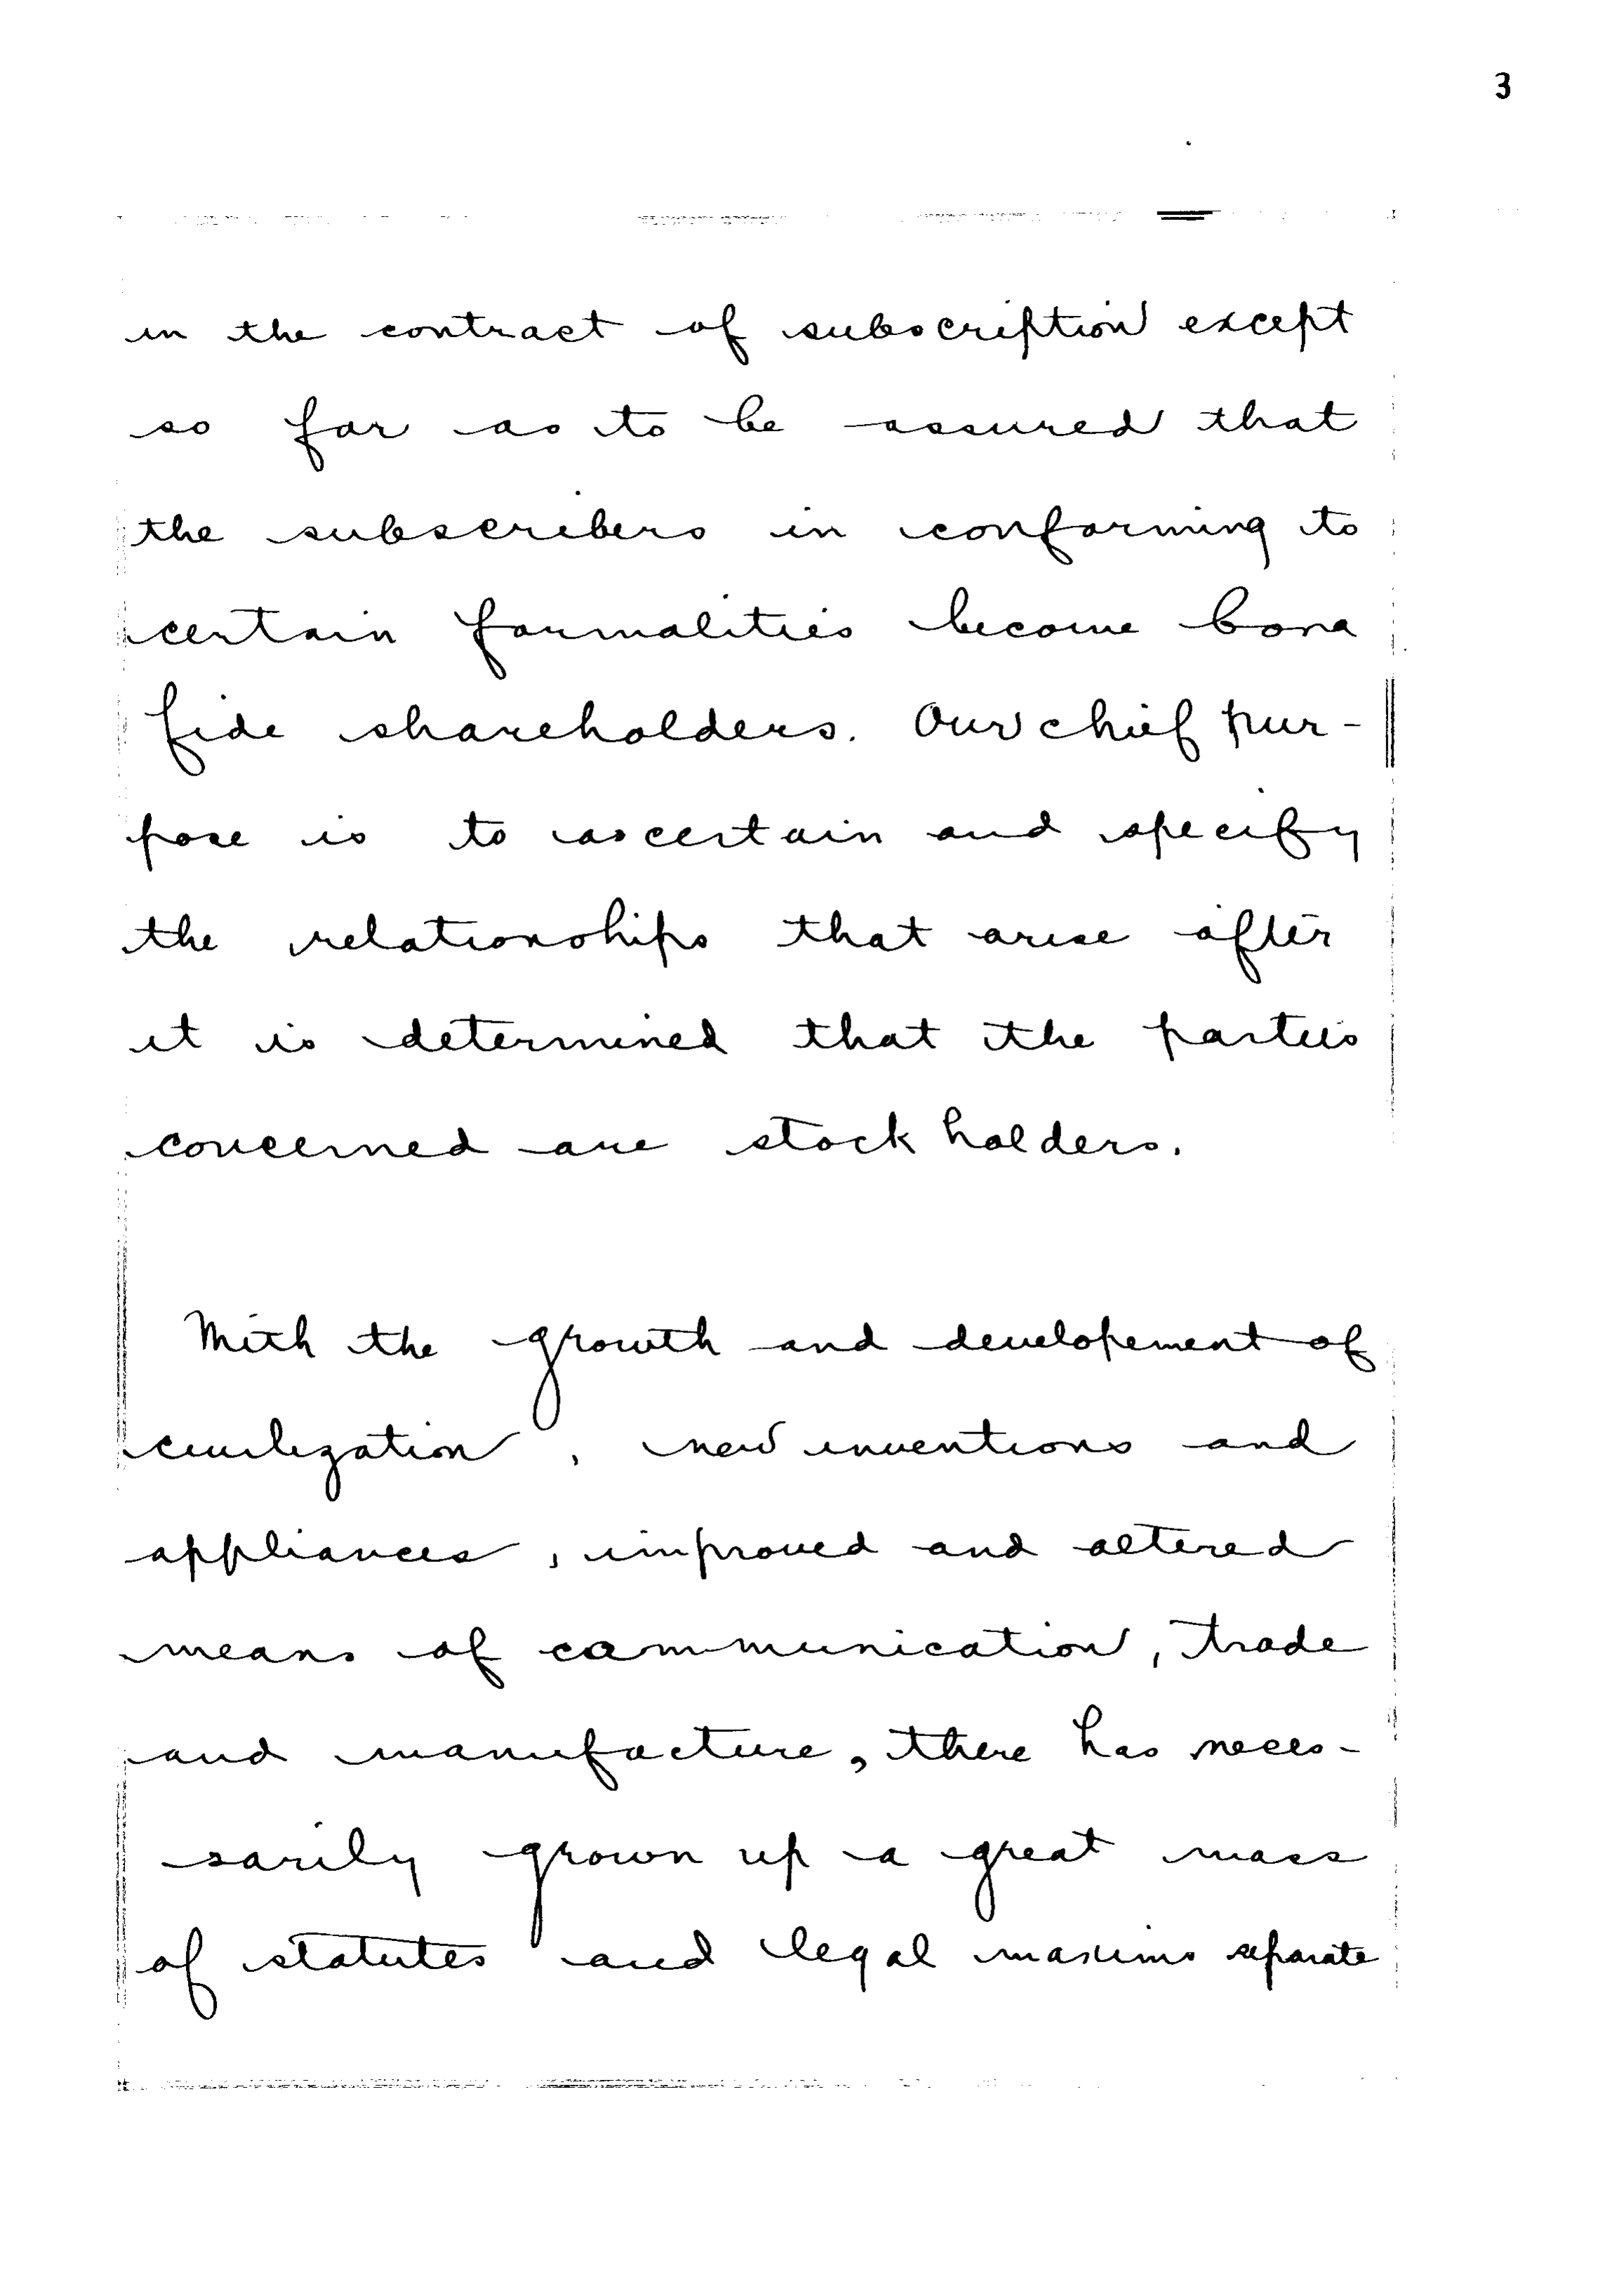 3
in the contract of subscription except
so far as to be assured that
the subscribers in conforming to
certain formalities become bona
fide shareholders. Our chief pur-
pose is to ascertain and specify
the relationships that arise after
it is determined that the parties
concerned are stock holders.
With the growth and developement of
civilization, new inventions and
appliances, improved and altered
means of communication, trade
and manufacture, there has neces-
sarily grown up a great mass
of statutes and legal maxims separate